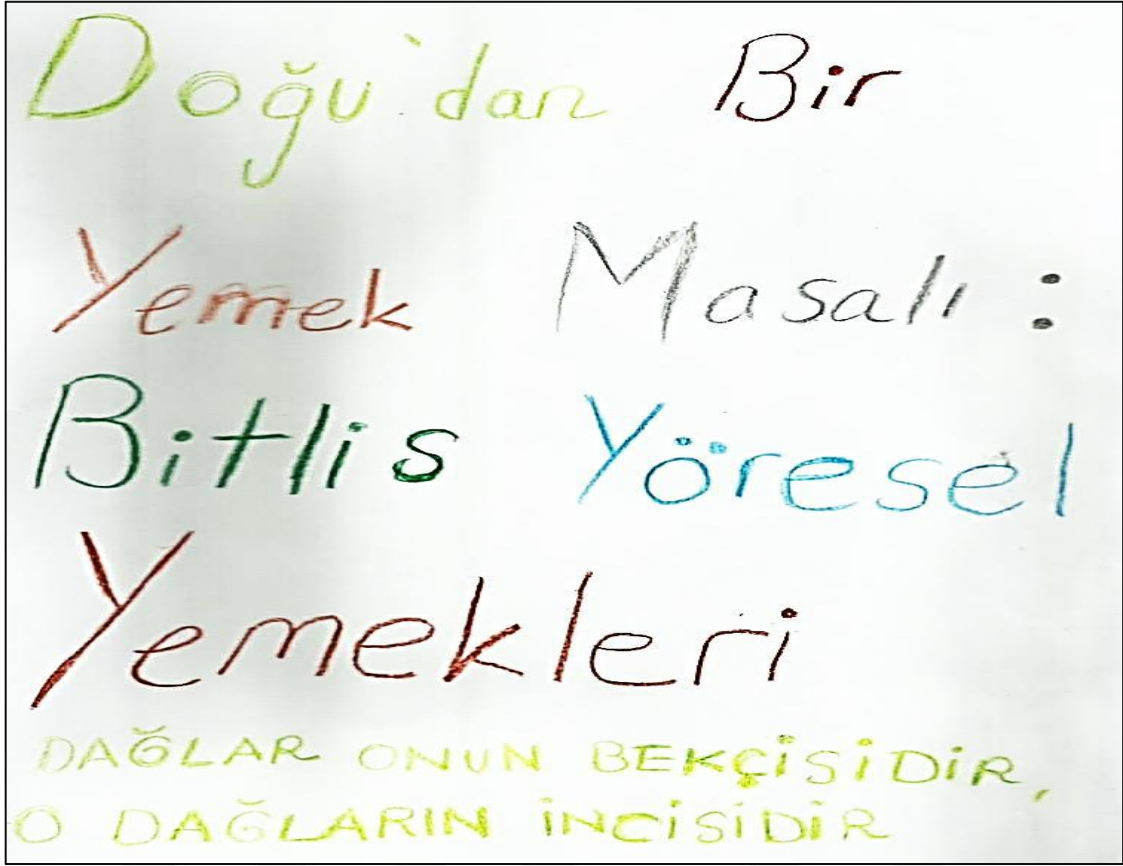 Doğu'dan Bir
Yemek Masalı :
Bitlis Yöresel
Yemekleri
DAĞLAR ONUN BEKÇİSİDİR,
O DAĞLARIN İNCİSİDİR